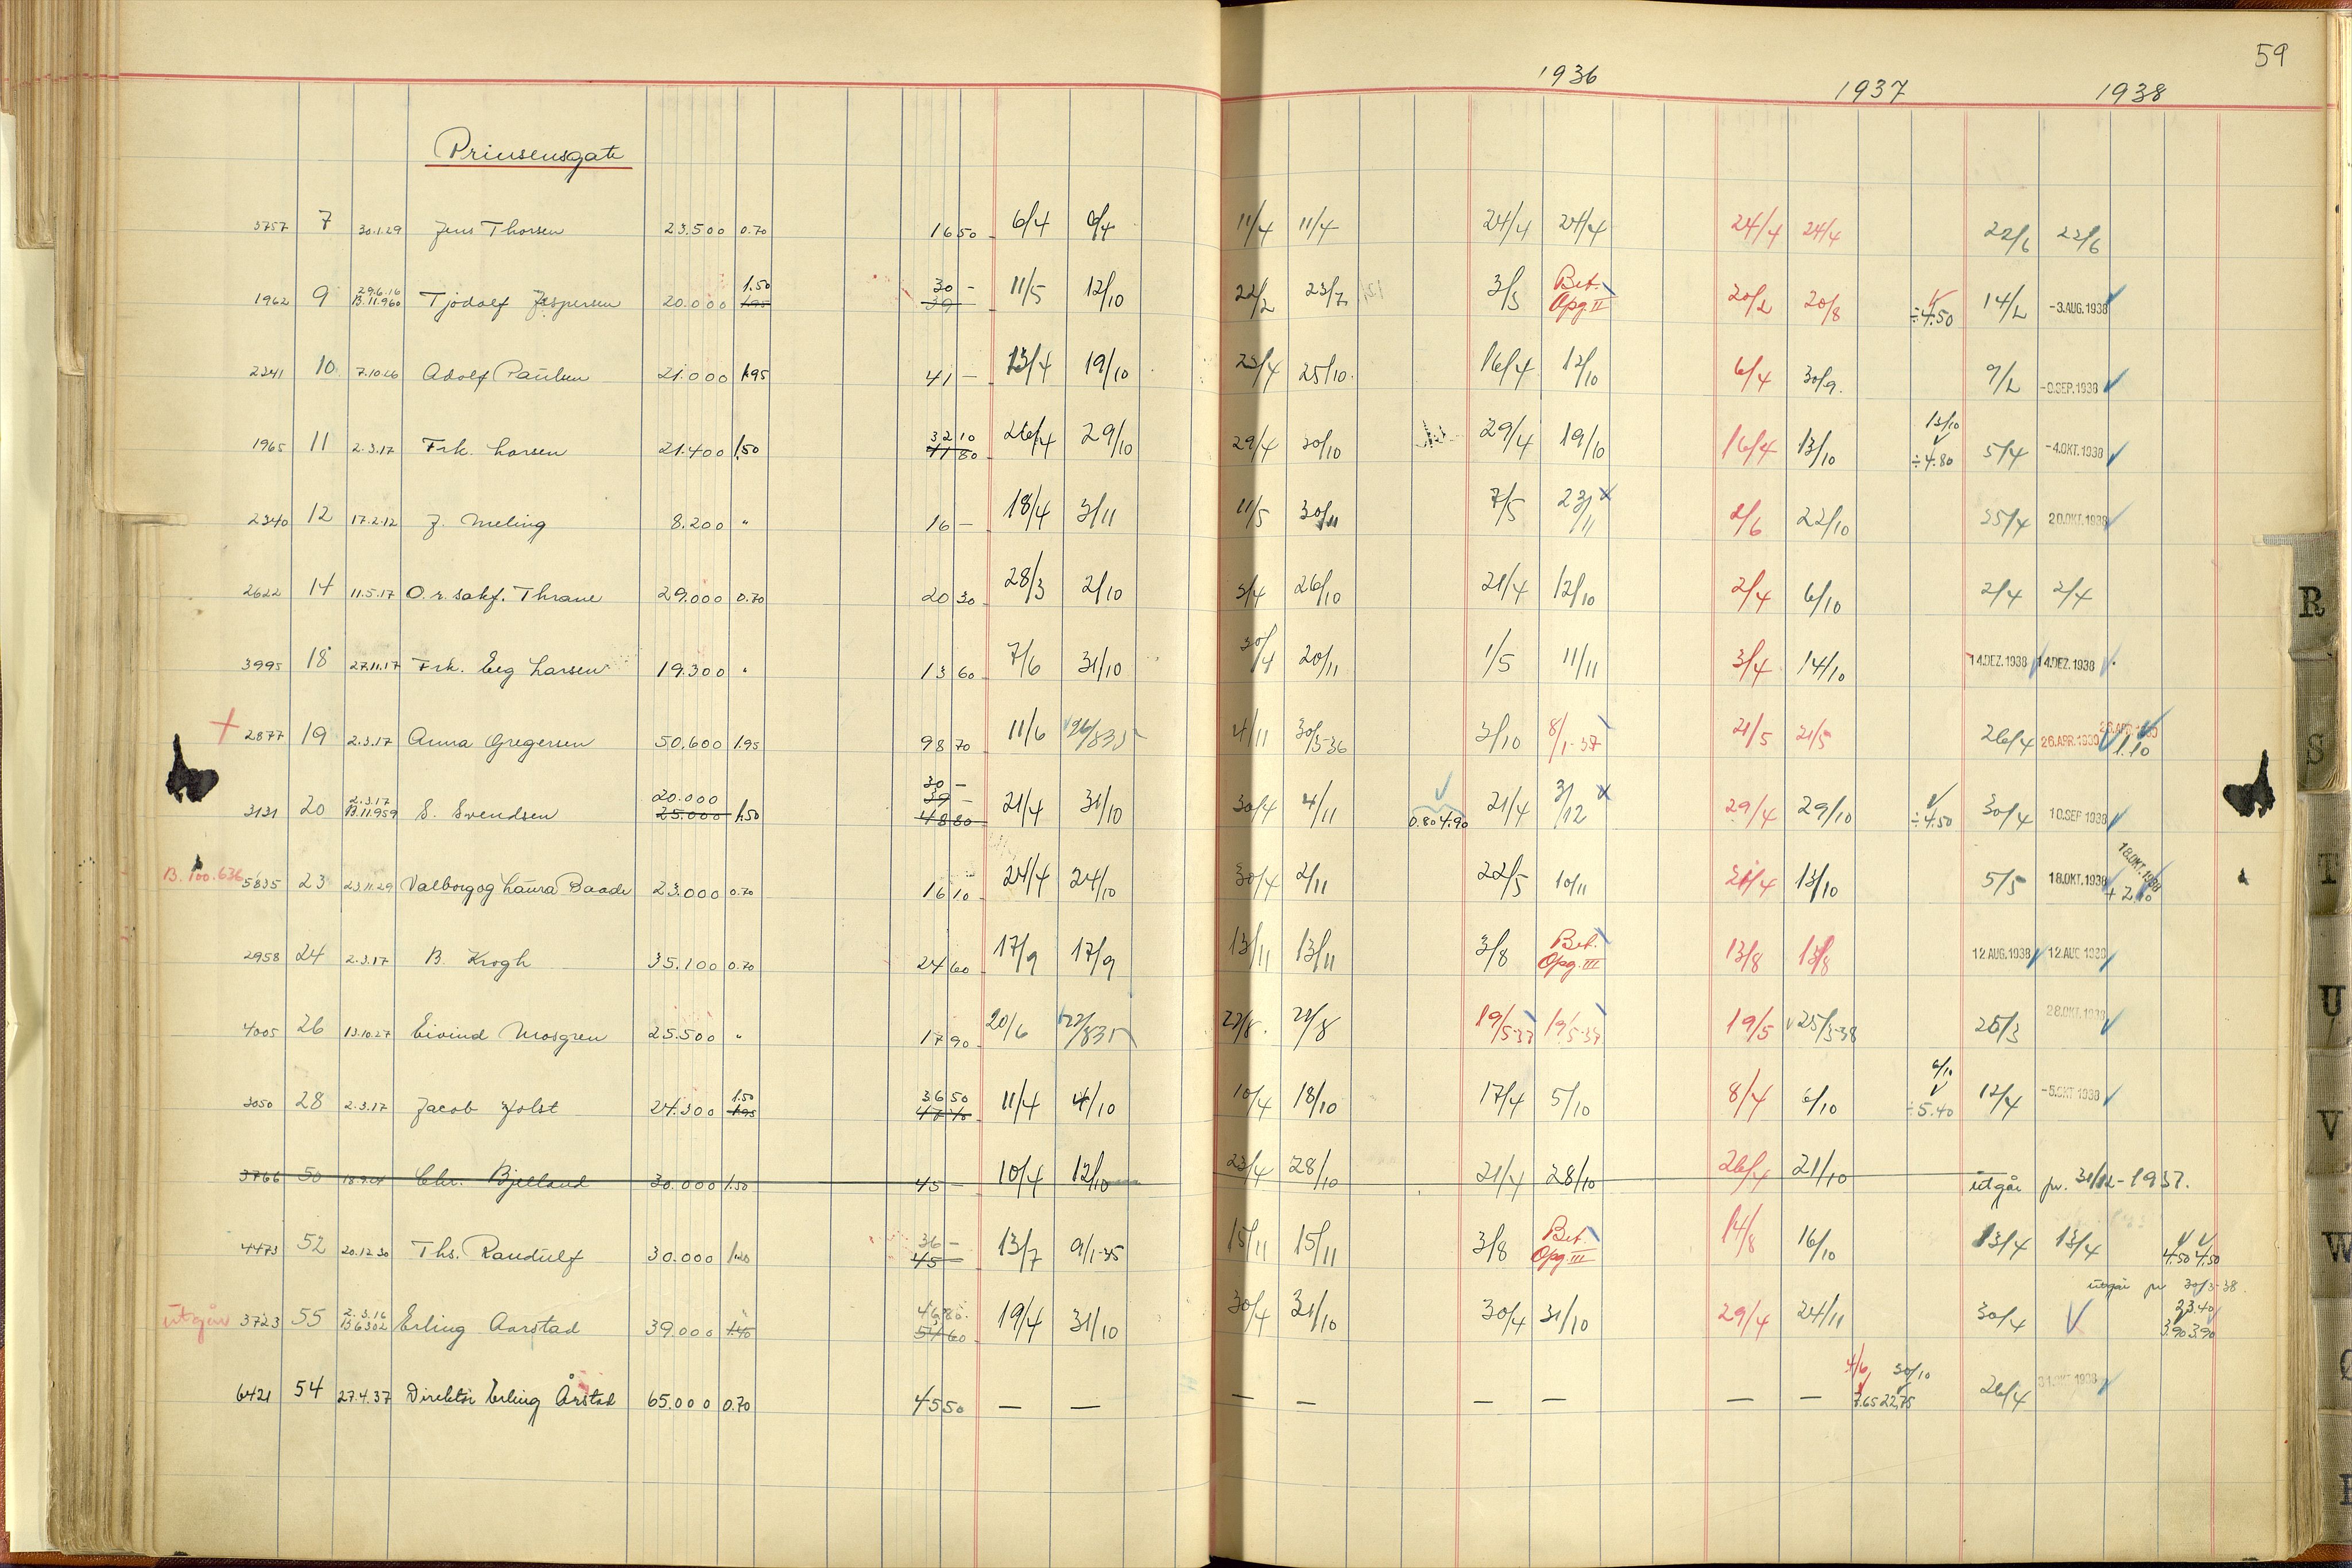 59
1936 1937 1938
Prinsensgate
3757 7 30.1.29 Jens Thorsen 23.500 0.70 16 50 6/4 6/4 11/4 11/4 24/4 24/4 24/4 24/4 22/6 22/6
1962 9 29.6.16 B.11.960 Tjodolf Jespersen 20.000 1.50 1.95 30 - 39 - 11/5 12/10 22/2 23/7 3/3 Bet. Opg. II 20/2 20/8 ÷4.50 14/2 -3.AUG.1938
2241 10 Adolf Paulsen 21.000 1.95 41 - 13/4 19/10 23/4 25/10 16/4 12/10 6/4 30/9. 9/2 SEP.1938
1965 11 2.3.17 Frk. Larsen 21.400 1.50 32 10 41 80 26/4 29/10 29/4 30/10 29/4 19/10 16/4 13/10 13/10 ÷4.80 5/4 -4.OKT.1938
2340 12 17.2.12 J. Meling 8.200 " 16 - 18/4 3/11 11/5 30/11 7/5 23/11 2/6 22/10 25/4 20.OKT.1938
2622 14 11.5.17 O.r.sakf. Thrane 29.000 0.70 20 30 28/3 2/10 5/4 26/10 21/4 12/10 2/4 6/10 2/4 2/4
3995 18 27.11.17 Frk. Eeg Larsen 19.300 " 13 60 7/6 31/10 30/4 20/11 1/5 11/11 3/4 14/10 14.DEZ.1938 14.DEZ.1938
+ 2877 19 2.3.17 Anna Gregersen 50.600 1.95 98 70 11/6 26/8 35 4/11 30/3-36 3/10 8/1-37 21/5 21/5 26/4 26.APR.1939 26.APR. 1.10
3131 20 2.3.17 B.11.959 S. Svendsen 20.000 25.000 1.50 30 - 39 - 48 80 21/4 31/10 30/4 4/11 0.80 4.90 21/4 3/12 29/4 29/10 ÷4.50 30/4 10.SEP 1938
B.100.636 5835 23 23.11.29 Valborg og Laura Baade 23.000 0.70 16 10 24/4 24/10 30/4 2/11 22/5 10/11 21/4 13/10 5/5 18.OKT.1938 18.OKT.1938 + 2.10
2958 24 2.3.17 B. Krogh 35.100 0.70 24 60 17/9 17/9 13/11 13/11 3/8 Bet. Opg. III 13/8 13/8 12.AUG.1938 12.AUG 1938
4005 26 13.10.27 Eivind Mosgren 25.500 " 17 90 20/6 22/8 35 22/8. 21/8 19/5-37 19/5-37 19/5 25/3-38 25/3 28.OKT.1938
3050 28 2.3.17 Jacob Holst 24.300 1.50 1.95 36 50 47 40 11/4 4/10 10/4 18/10 17/4 5/10 8/4 6/10 6/10 ÷5.40 12/4 -5.OKT 1938
3766 50 Chr. Bjelland 30.000 1.50 45 - 10/4 12/10 23/4 28/10 21/4 28/10 26/4 21/10 utgår pr. 31/12-1937.
4473 52 20.12.30 Ths. Randulf 30.000 36 - 45 - 13/7 9/1-35 15/11 15/11 3/8 Bet. Opg. III 14/8 16/10 13/4 13/4 4.50 4.50
utgår pr 30/3-38.
utgår 3723 55 2.3.16 B6302 Erling Aarstad 39.000 " 1.40 46 80. 54 60 19/4 31/10 30/4 31/10 30/4 31/10 29/4 24/11 30/4 23.40 3.90 3.90
6421 54 27.4.37 Direktør Erling Årstad 65.000 0.70 45 50 — — — — — — — — 4/6 30/10 7.65 22.75 26/4 OKT 1938
R
S
T
U
V
W